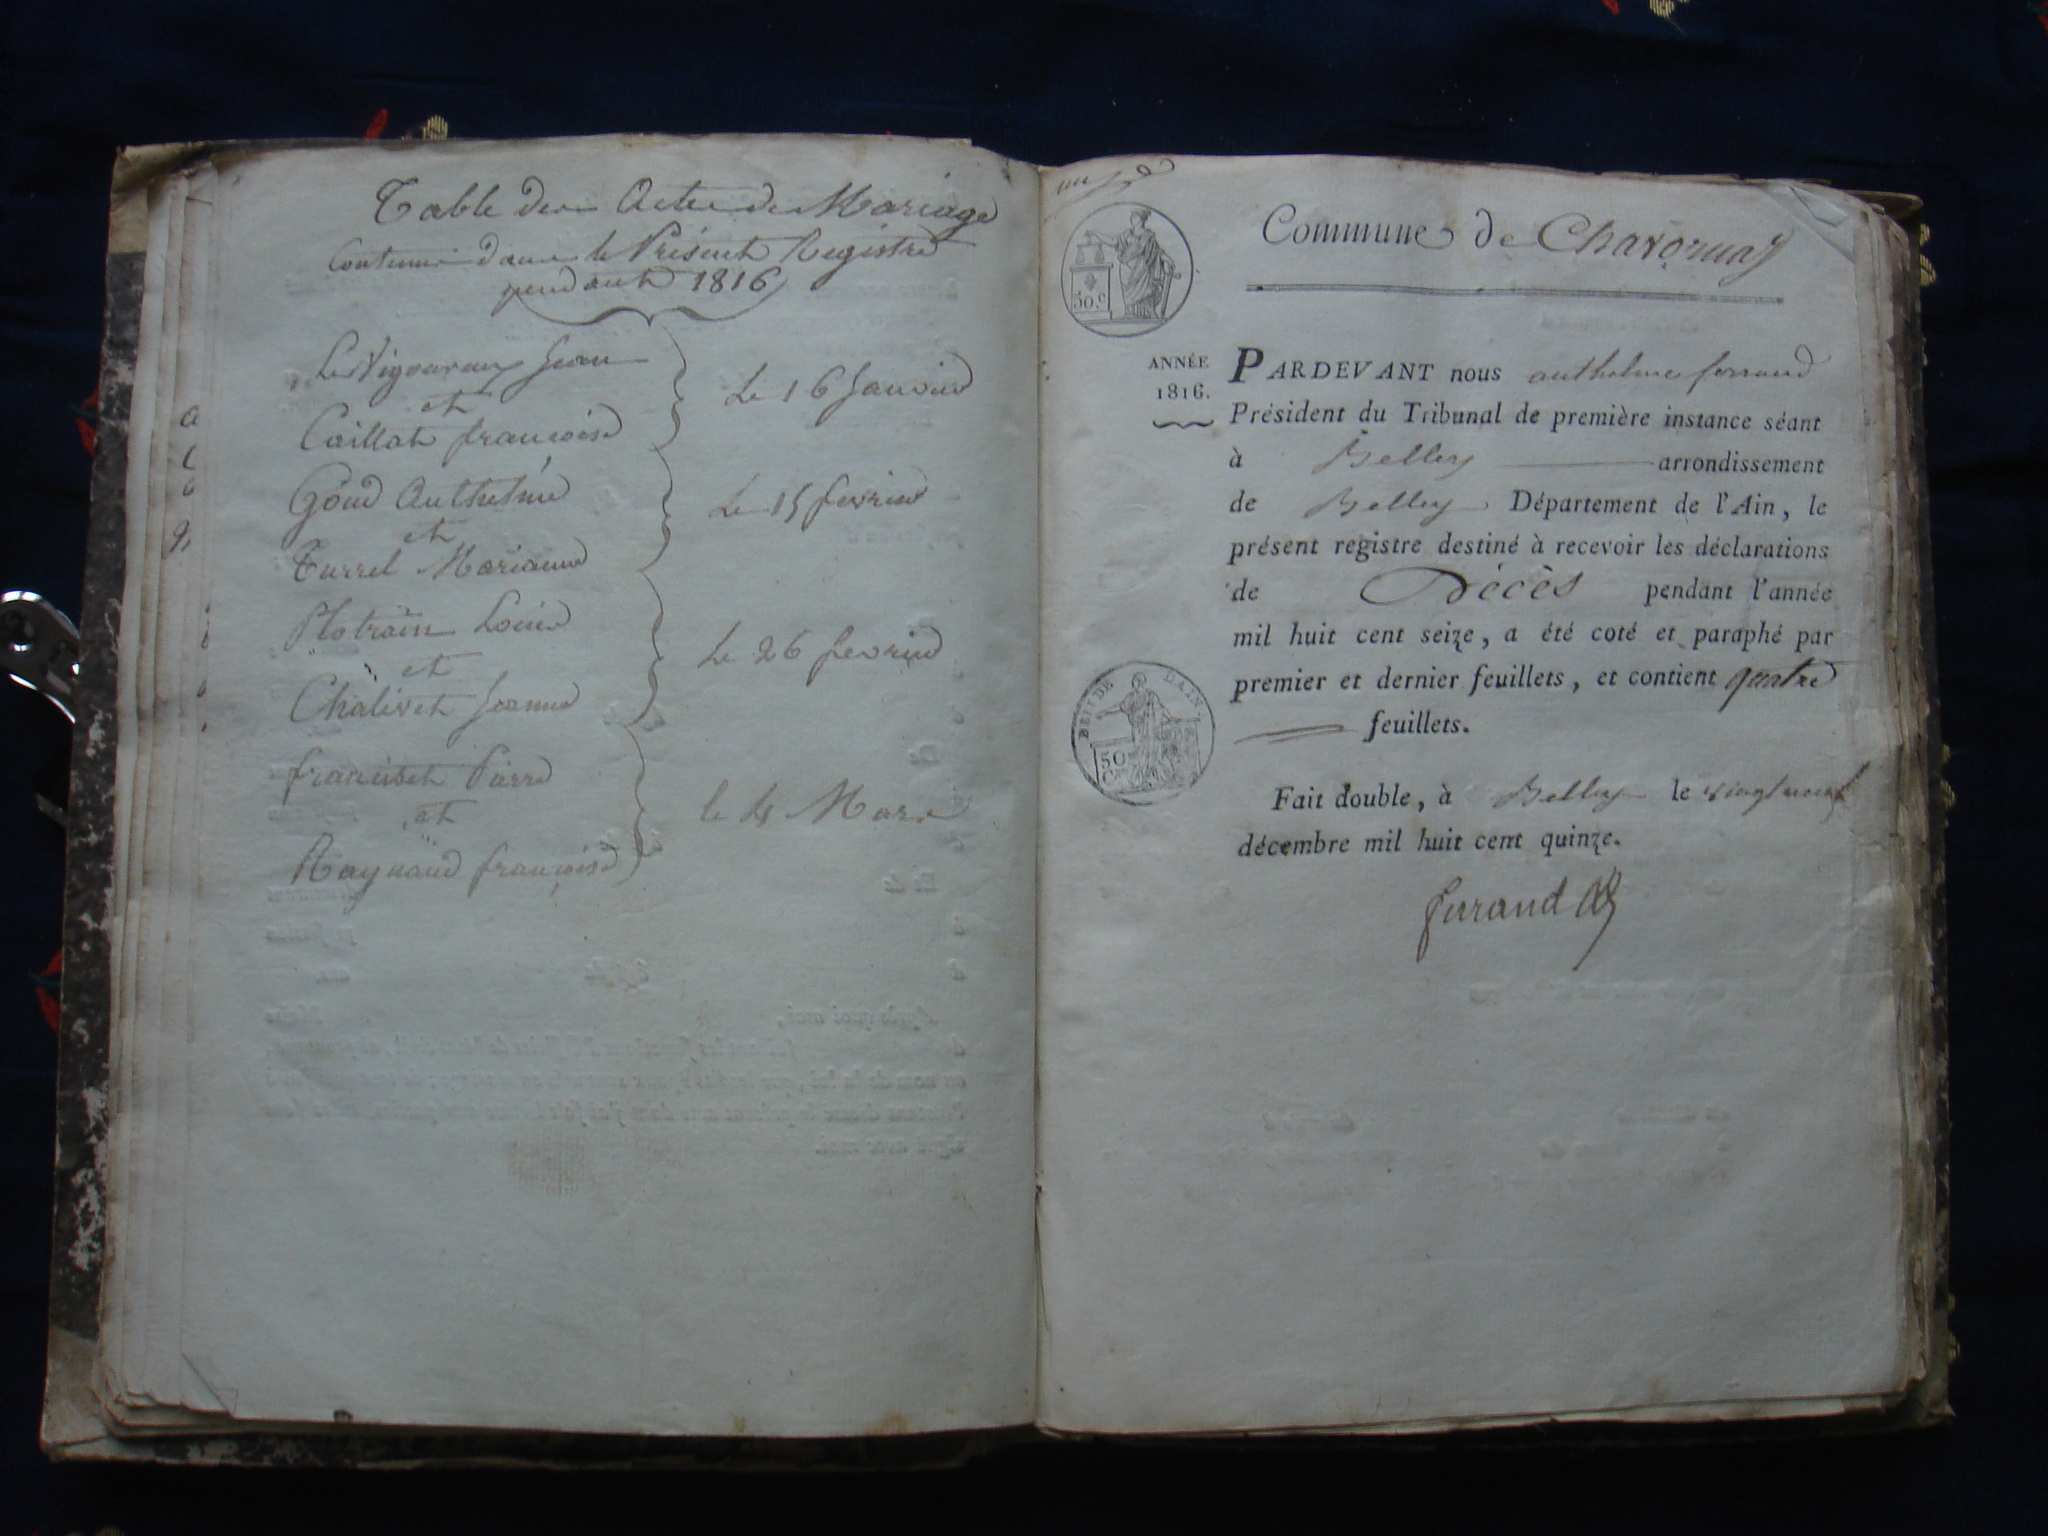 Table des Actes de Mariage
Contenus dans le Présent Registre
pendant 1816
Le Vigoureux Jean
et
Caillat françoise
Le 16 Janvier
Goud Anthelme
et
Turrel Marianne
Le 15 fevrier
Plotrain Louis
et
Chalivet Jeanne
Le 26 fevrier
francisset Pierre
et
Raynaud françoise
le 4 Mars
Commune de Chavornay
50.c
ANNÉE
1816.
PARDEVANT nous anthelme ferrand
Président du Tribunal de première instance séant
à Belley arrondissement
de Belley Département de l'Ain, le
présent registre destiné à recevoir les déclarations
de Décès pendant l'année
mil huit cent seize, a été coté et paraphé par
premier et dernier feuillets, et contient quatre
feuillets.
DE L'AIN
50
Cmes
Fait double, à Belley le vingt neuf
décembre mil huit cent quinze.
ferrand